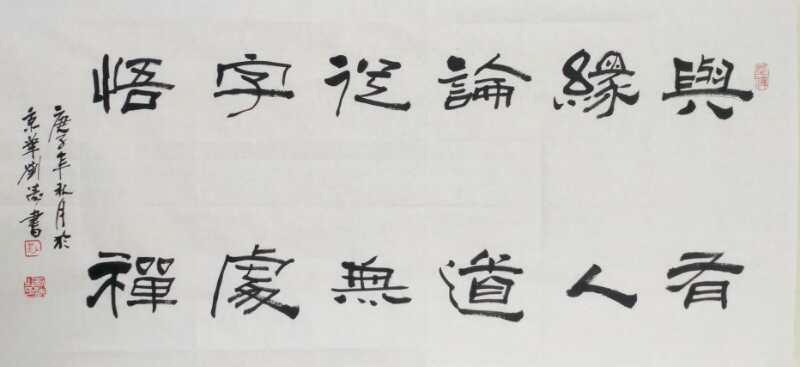 與有
緣人
論道
從無
字處
悟禪
庚子年秋月於
京華劉書